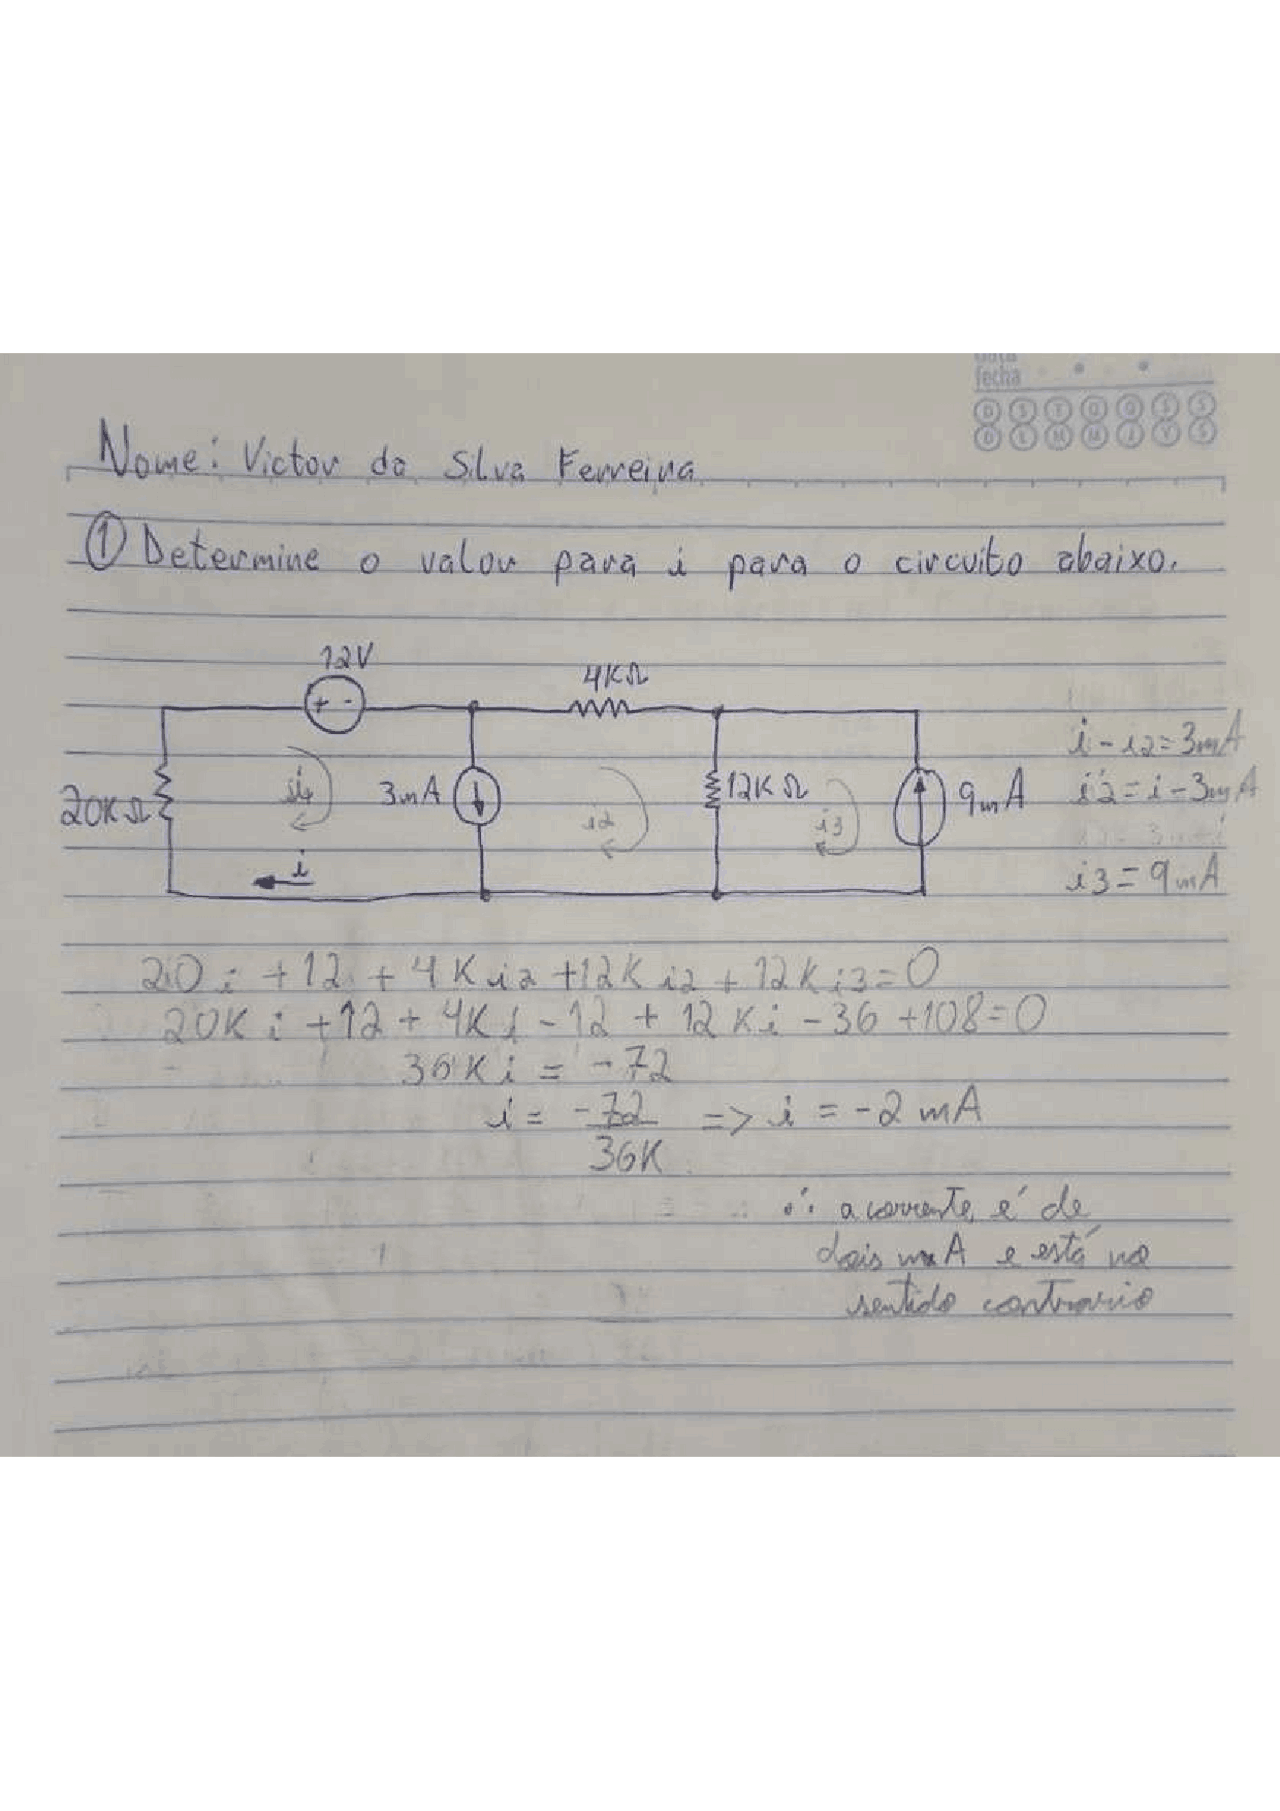 fecha
D S T Q Q S S
D L M M J V S
Nome: Victor da Silva Ferreira
① Determine o valor para i para o circuito abaixo.
12V
4KΩ
+ -
i - i2 = 3mA
20KΩ
i1
3mA
i2
12KΩ
i3
9mA
i2 = i - 3mA
i
i3 = 9mA
20 i + 12 + 4K i2 + 12K i2 + 12K i3 = 0
20K i + 12 + 4K i - 12 + 12K i - 36 + 108 = 0
36K i = -72
i = -72 => i = -2 mA
36K
∴ a corrente é de
dois mA e está no
sentido contrario